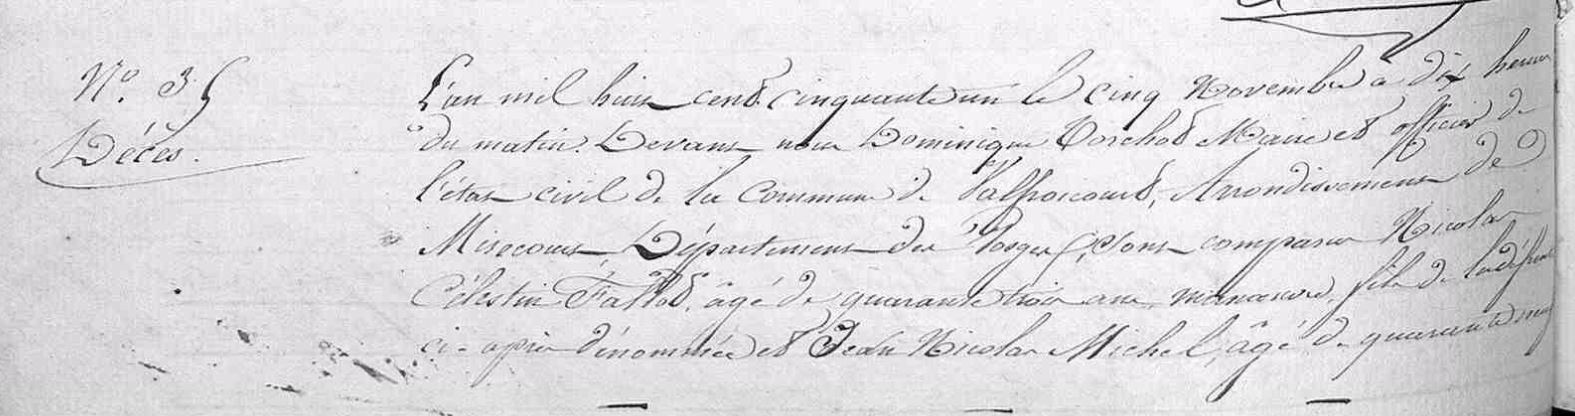 N.o 35
Décès.
L'an mil huit cent cinquante un le cinq Novembre à dix heures
du matin. Devant nous Dominique Torchot Maire et officier de
l'état civil de la commune de Valfroicourt, Arrondissement de
Mirecourt, Département des Vosges, sont comparus Nicolas
Célestin Fattot, âgé de quarante trois ans, manœuvre, fils de la défunte
ci-après dénommée et Jean Nicolas Michel, âgé de quarante neuf